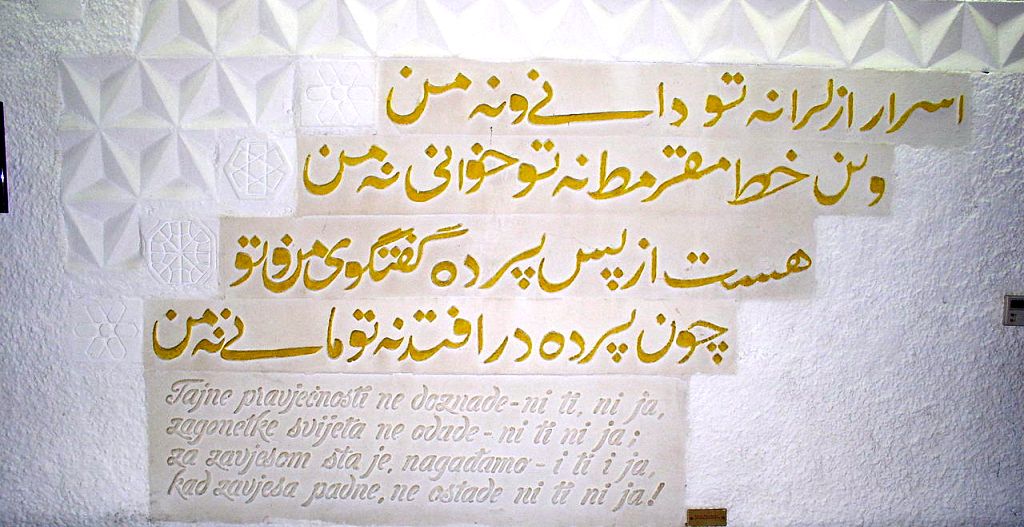 اسرار ازل را نه تو دانی و نه من
وین خط مقرمط نه تو خوانی نه من
هست از پس پرده گفتگوی من و تو
چون پرده درافتد نه تو مانی نه من
Tajne pravječnosti ne doznade - ni ti, ni ja,
zagonetke svijeta ne odade - ni ti ni ja;
za zavjesom šta je, nagađamo - i ti i ja,
kad zavjesa padne, ne ostade ni ti ni ja!